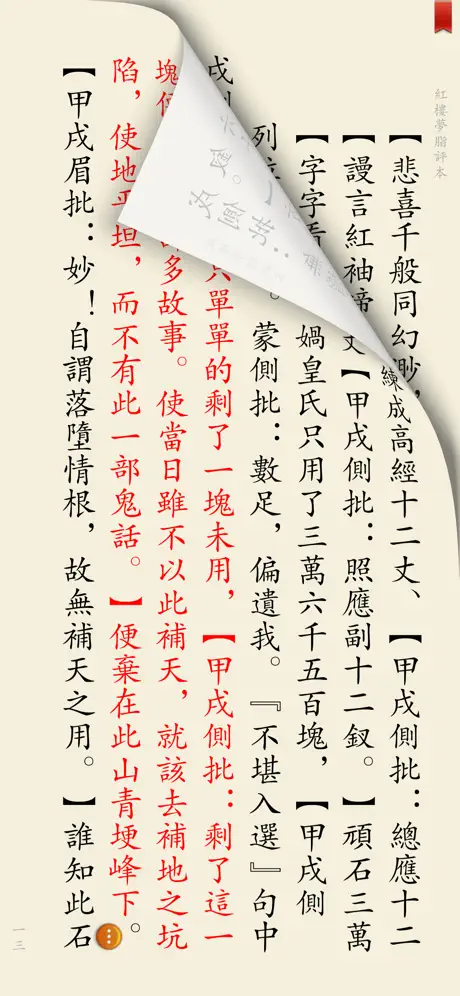 紅樓夢脂評本
【悲喜千般同幻渺，練成高經十二丈、【甲戌側批：總應十二
【謾言紅袖啼丈【甲戌側批：照應副十二釵。】頑石三萬
【字字看媧皇氏只用了三萬六千五百塊，【甲戌側
列。蒙側批：數足，偏遺我。『不堪入選』句中
戌只單單的剩了一塊未用，【甲戌側批：剩了這一
塊多故事。使當日雖不以此補天，就該去補地之坑
陷，使地平坦，而不有此一部鬼話。】便棄在此山青埂峰下。
【甲戌眉批：妙！自謂落墮情根，故無補天之用。】誰知此石
一三